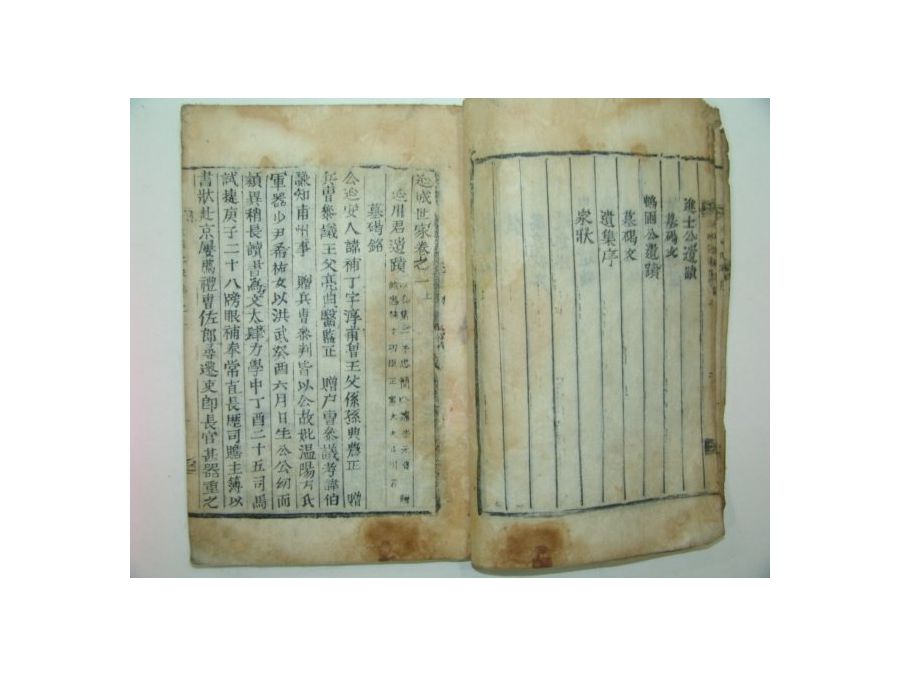 進士公遺蹟
墓碣文
鶴西公遺蹟
墓碣文
遺集序
家狀
延城世家卷之一上
延川君遺蹟
墓碣銘
公延安人諱補丁字淳甫曾王父係孫典農正 贈
兵曹參議王父亮典醫監正 贈戶曹參議考諱伯
謙知甫州事 贈兵曹參判皆以公故妣溫陽方氏
軍器少尹希祐女以洪武癸酉六月日生公公幼而
穎異稍長讀書高文太肆力學中丁酉二十五司馬
試捷庚子二十八牓眼補奉常直長歷司贍主簿以
書狀赴京屢薦禮曹佐郎尋遷吏郎長官甚器重之